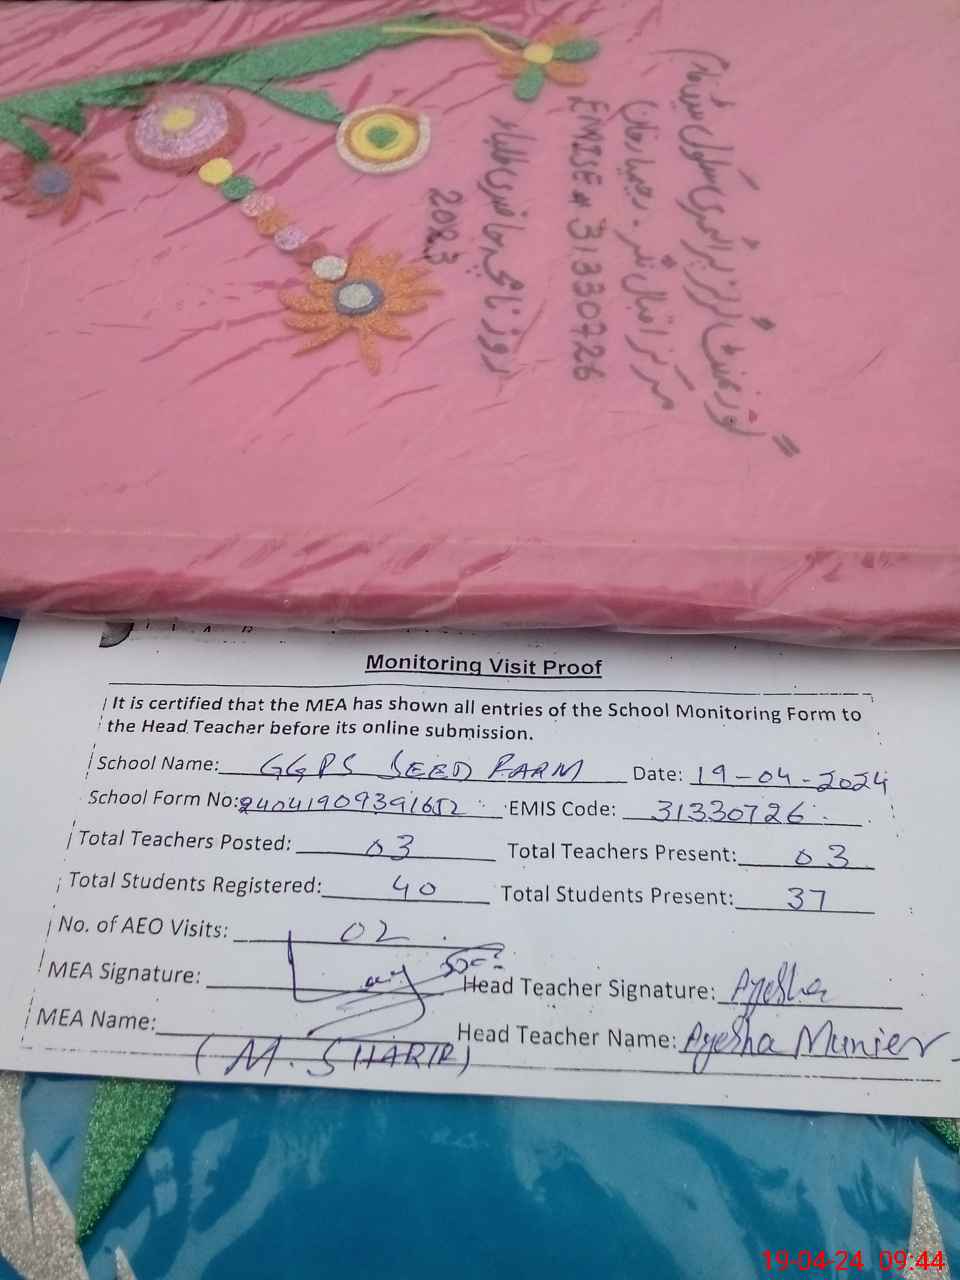 گورنمنٹ گرلز پرائمری سکول سیڈ فارم
مرکز اقبال نگر۔ چیچہ وطنی
EMISE # 31330726
روزنامچہ حاضری طلباء
2023
Monitoring Visit Proof
It is certified that the MEA has shown all entries of the School Monitoring Form to
the Head Teacher before its online submission.
School Name: GGPS SEED FARM Date: 19-04-2024
School Form No: 24041909391652 EMIS Code: 31330726
Total Teachers Posted: 03 Total Teachers Present: 03
Total Students Registered: 40 Total Students Present: 37
No. of AEO Visits: 02
MEA Signature: Head Teacher Signature: Ayesha
MEA Name: Head Teacher Name: Ayesha Munier
(M. SHARIR)
19-04-24 09:44